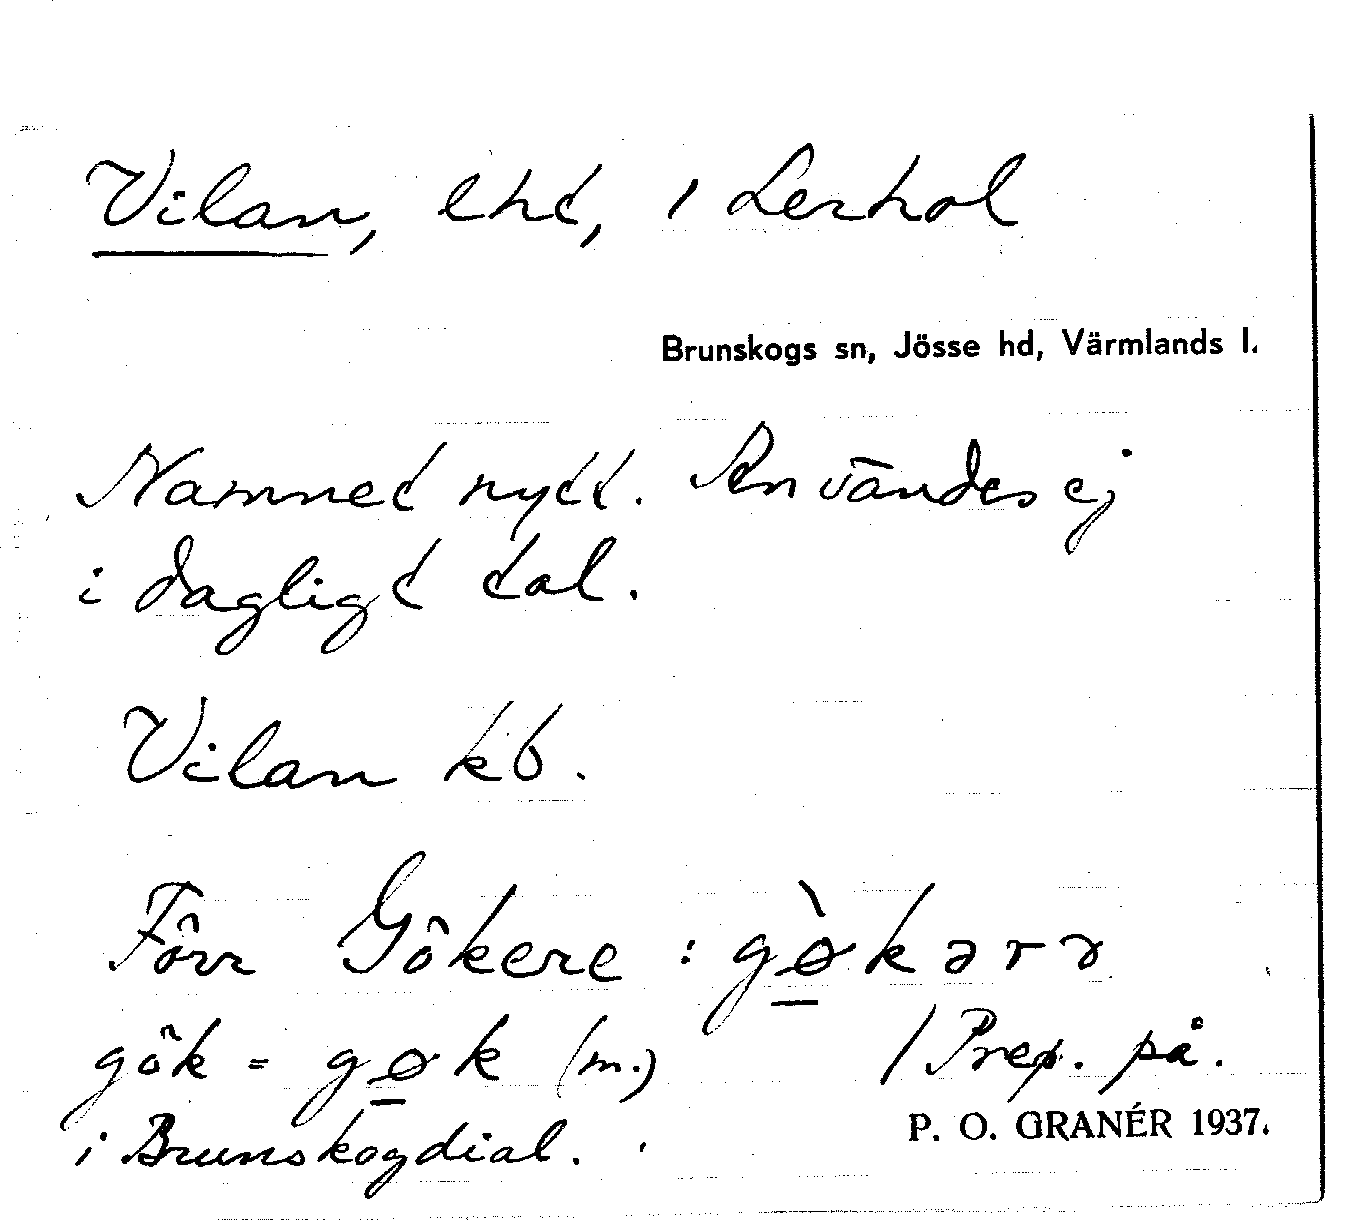 Vilan, lht, i Lerhol
Brunskogs sn, Jösse hd, Värmlands l.
Namnet nytt. Användes ej
i dagligt tal.
Vilan kb.
Förr Gökere : gø̀kərə
gök = gøk (m.) / Prep. på.
i Brunskogdial.
P. O. GRANÉR 1937.